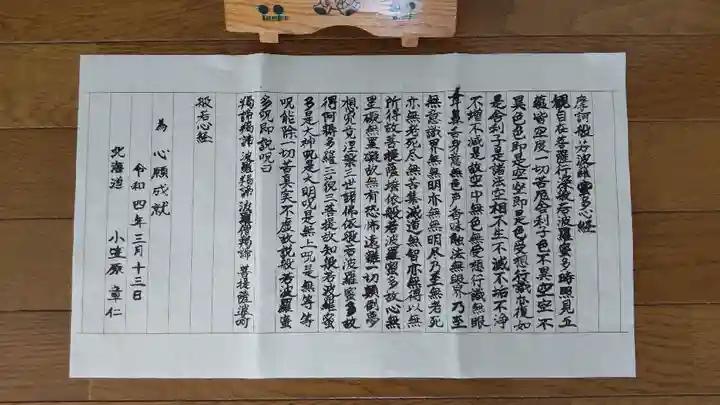 摩訶般若波羅蜜多心経
観自在菩薩行深般若波羅蜜多時照見五
蘊皆空度一切苦厄舎利子色不異空空不
異色色即是空空即是色受想行識亦復如
是舎利子是諸法空相不生不滅不垢不浄
不増不減是故空中無色無受想行識無眼
耳鼻舌身意無色声香味触法無眼界乃至
無意識界無無明亦無無明尽乃至無老死
亦無老死尽無苦集滅道無智亦無得以無
所得故菩提薩埵依般若波羅蜜多故心無
罣礙無罣礙故無有恐怖遠離一切顛倒夢
想究竟涅槃三世諸佛依般若波羅蜜多故
得阿耨多羅三藐三菩提故知般若波羅蜜
多是大神呪是大明呪是無上呪是無等等
呪能除一切苦真実不虚故説般若波羅蜜
多呪即説呪曰
羯諦羯諦 波羅羯諦 波羅僧羯諦 菩提薩婆訶
般若心経
為 心願成就
令和四年三月十三日
北海道 小笠原 章仁